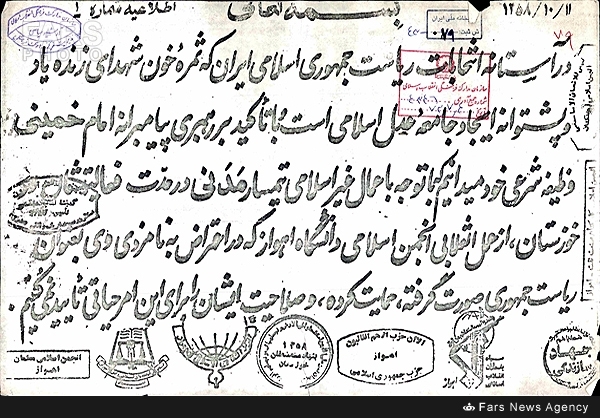 بسمه تعالی
۱۳۵۸/۱۰/۱۱
اطلاعیه شماره ۱
در آستانه انتخابات ریاست جمهوری اسلامی ایران که ثمره خون شهدای زنده یاد
و پشتوانه ایجاد جامعه عدل اسلامی است با تأکید بر رهبری پیامبرانه امام خمینی
وظیفه شرعی خود میدانیم که با توجه به اعمال غیر اسلامی تیمسار مدنی در مدت فعالیتشان در
خوزستان، از عمل انقلابی انجمن اسلامی دانشگاه اهواز که در اعتراض به نامزدی وی بعنوان
ریاست جمهوری صورت گرفته، حمایت کرده، و صلاحیت ایشان را برای این امر حیاتی تأیید نمی‌کنیم.
انجمن اسلامی معلمان
اهواز
۱۳۵۸
اهواز
حزب جمهوری اسلامی
سپاه
پاسداران
انقلاب
اسلامی
اهواز
جهاد
سازندگی
Fars News Agency